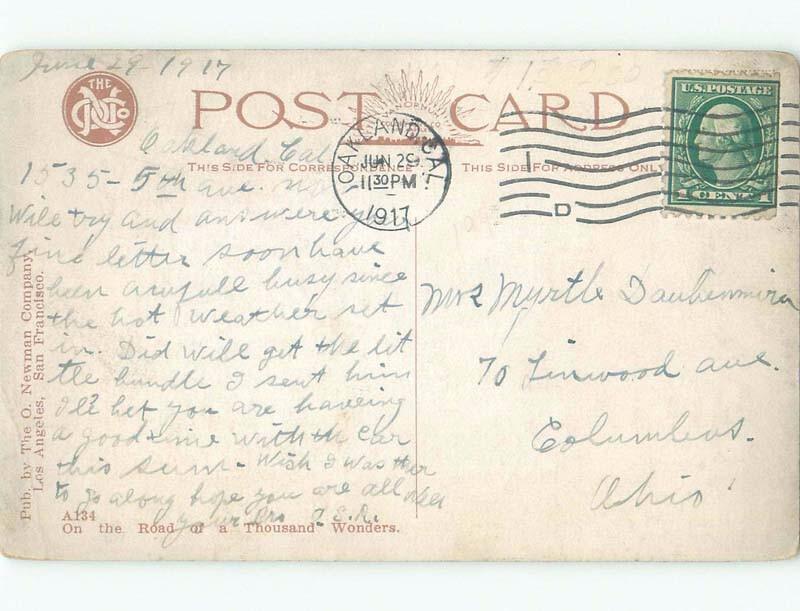 June 29 1917
THE
N Co
POST CARD
Oakland. Cal
THIS SIDE FOR CORRESPONDENCE
THIS SIDE FOR ADDRESS ONLY
OAKLAND, CAL.
JUN 29
11 30 PM
1917
D
U.S. POSTAGE
1 CENT 1
1535 - 5th ave.
Will try and answere your
fine letter soon have
been awfull busy since
the hot weather set
in. Did Will get the lit
tle bundle I sent him
I'll bet you are haveing
a good time with th car
this sum - Wish I was ther
to go along hope you are all well
your Bro
Mrs Myrtle Daubenmira
70 Linwood ave.
Columbus.
Ohio
Pub. by The O. Newman Company,
Los Angeles, San Francisco.
A134
On the Road of a Thousand Wonders.